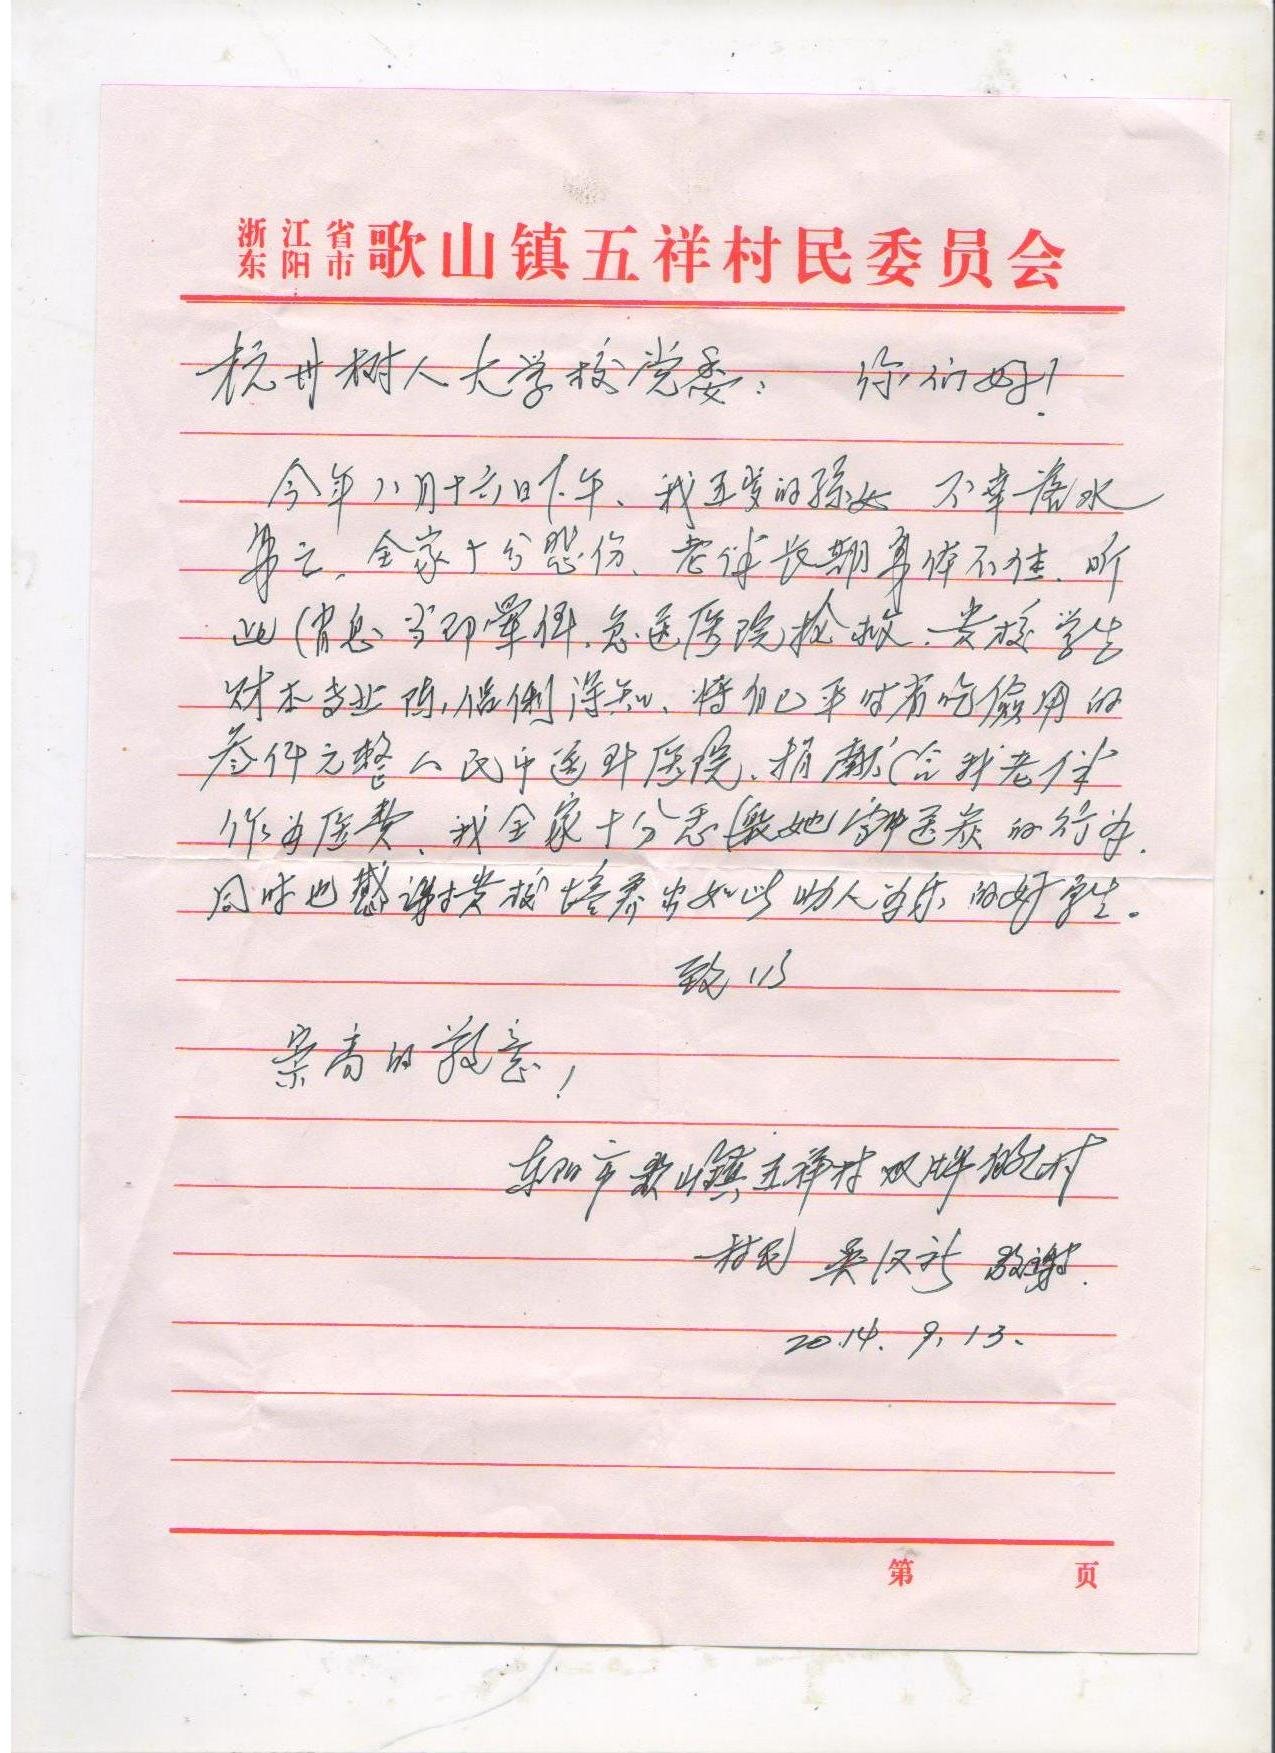 浙江省
东阳市 歌山镇五祥村民委员会
杭州树人大学校党委： 你们好！
今年八月十六日下午、我五岁的孙女 不幸落水
身亡、全家十分悲伤、老伴长期身体不佳、听
此消息当即晕倒、急送医院抢救、贵校学生
财本专业陈俐得知、将自己平时省吃俭用的
叁仟元整人民币送到医院、捐献给我老伴
作为医费、我全家十分感激她雪中送炭的行为.
同时也感谢贵校培养出如此助人为乐的好学生。
致以
崇高的敬意！
东阳市歌山镇五祥村双牌村
村民 吴汉新 敬谢.
2014. 9. 13.
第 页